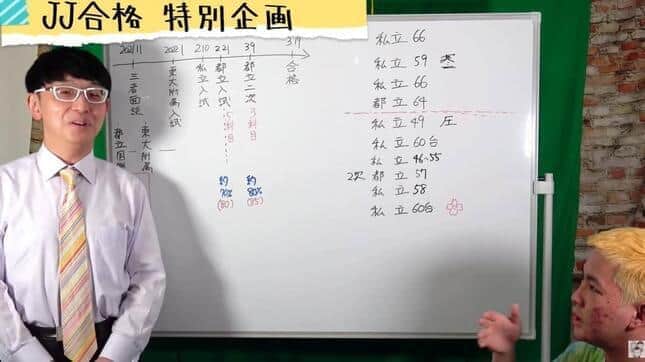 JJ合格 特別企画
2021 2.10 2.21 3.9 3.19
三者面談
東大附属入試
私立入試
都立入試
都立二次
合格
東大附属
5科目
3科目
約70%
(80)
約80%
私立 66
私立 59
私立 66
都立 64
私立 49 圧
私立 60台
私立 46~55
2次 都立 57
私立 58
私立 60台